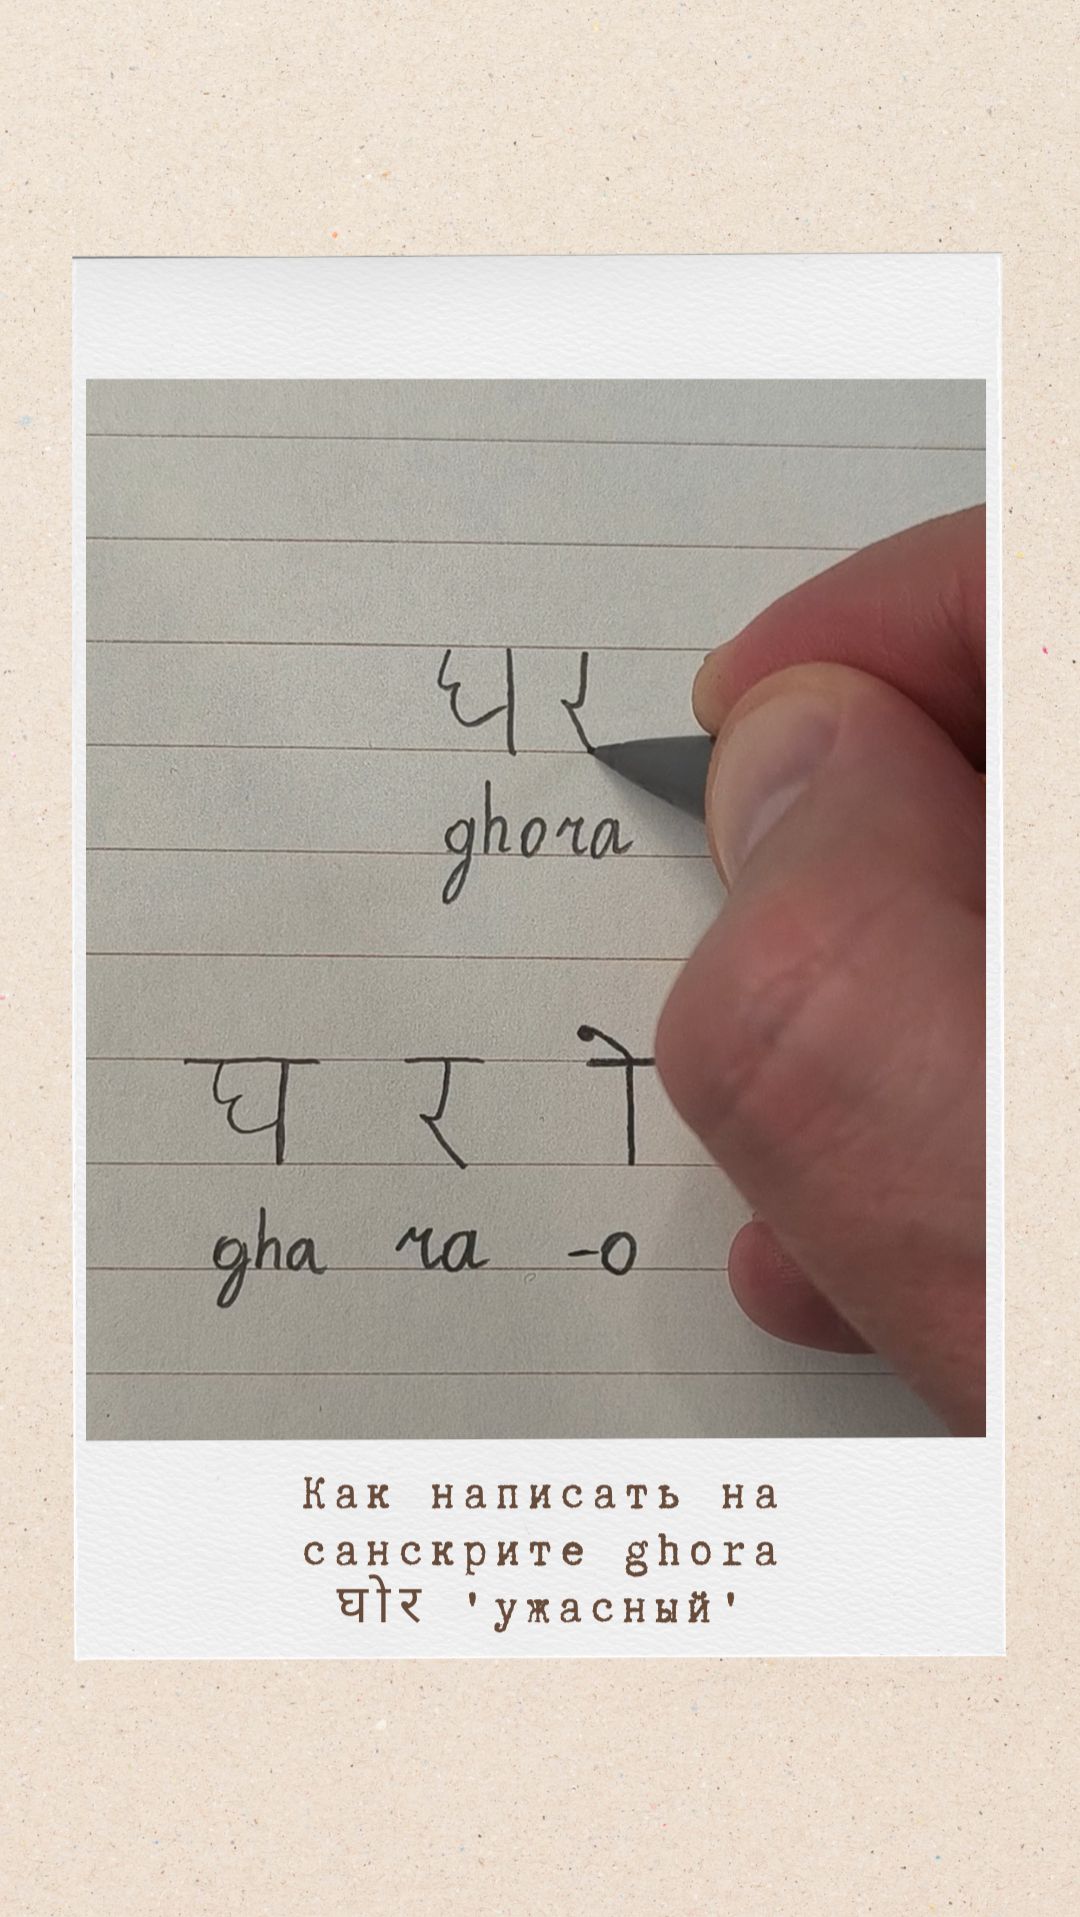 घर
ghora
घ र ो
gha ra -o
Как написать на
санскрите ghora
घोर 'ужасный'